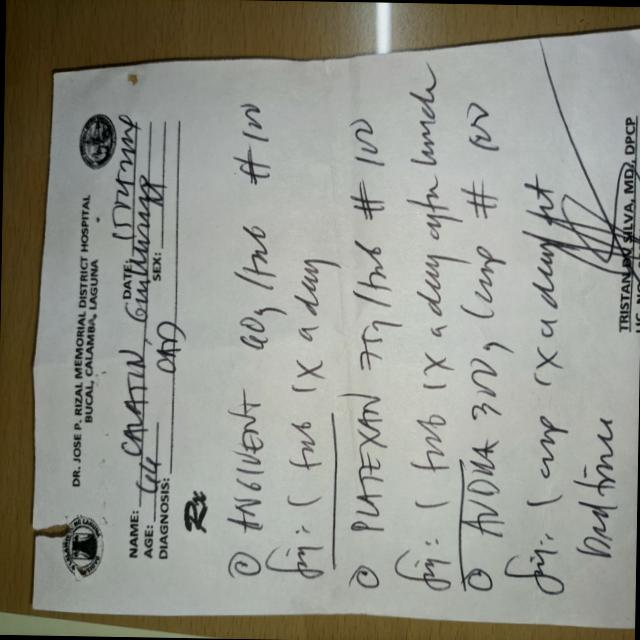 DR. JOSE P. RIZAL MEMORIAL DISTRICT HOSPITAL
BUCAL, CALAMBA, LAGUNA
NAME: DATE:
AGE: 64 SEX:
DIAGNOSIS: CAD
Rx
ANGIVENT 60g/tab # 100
Sig: 1 tab 1x a day
PLATEXAN 75g/tab # 100
Sig: 1 tab 1x a day after lunch
300g/cap # 100
Sig: 1 cap 1x a day at
bedtime
TRISTAN DC SILVA, MD, DPCP